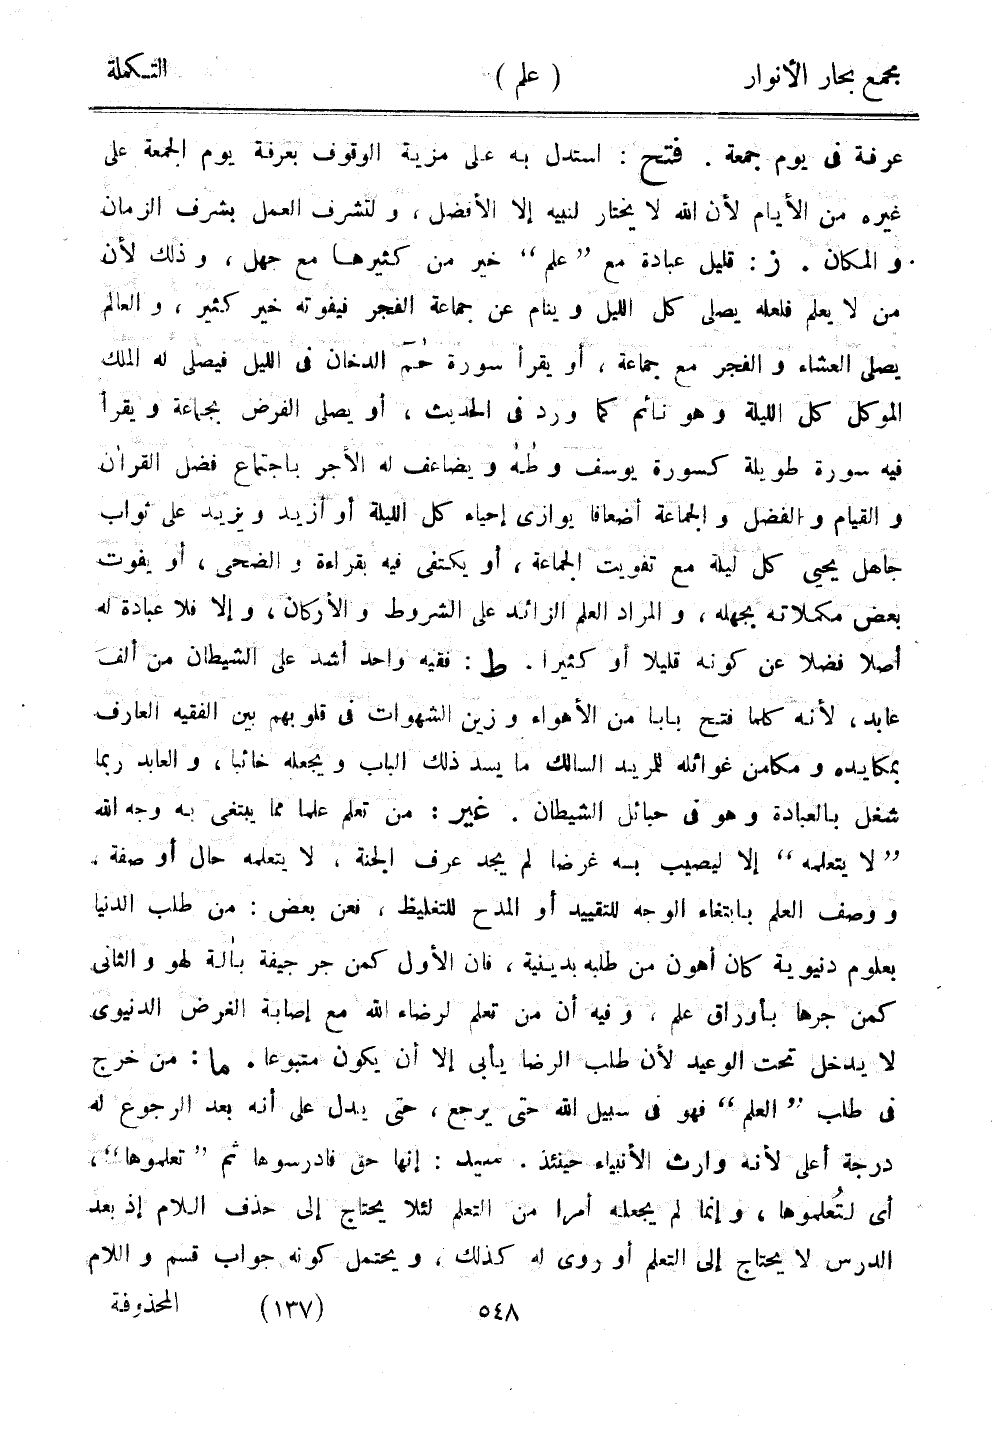 مجمع بحار الأنوار ( علم ) التـكملة
عرفة فى يوم جمعة . فتح : استدل به على مزية الوقوف بعرفة يوم الجمعة على
غيره من الأيام لأن الله لا يختار لنبيه إلا الأفضل ، و لتشرف العمل بشرف الزمان
و المكان . ز : قليل عبادة مع ”علم“ خير من كثيرها مع جهل ، و ذلك لأن
من لا يعلم فلعله يصلى كل الليل و ينام عن جماعة الفجر فيفوته خير كثير ، و العالم
يصلى العشاء و الفجر مع جماعة ، أو يقرأ سورة حٰمٓ الدخان فى الليل فيصلى له الملك
الموكل كل الليلة و هو نائم كما ورد فى الحديث ، أو يصلى الفرض بجماعة و يقرأ
فيه سورة طويلة كسورة يوسف و طٰهٰ و يضاعف له الأجر باجتماع فضل القرأن
و القيام و الفضل و الجماعة أضعافا يوازى إحياء كل الليلة أو أزيد و يزيد على ثواب
جاهل يحيى كل ليلة مع تفويت الجماعة ، أو يكتفى فيه بقراءة و الضحى ، أو يفوت
بعض مكملاته بجهله ، و المراد العلم الزائد على الشروط و الأركان ، و إلا فلا عبادة له
أصلا فضلا عن كونه قليلا أو كثيرا . ط : فقيه واحد أشد على الشيطان من ألف
عابد ، لأنه كلما فتح بابا من الأهواء و زين الشهوات فى قلوبهم بين الفقيه العارف
بمكايده و مكامن غوائله للمريد السالك ما يسد ذلك الباب و يجعله خائبا ، و العابد ربما
شغل بالعبادة و هو فى حبائل الشيطان . غير : من تعلم علما مما يبتغى به وجه الله
”لا يتعلمه“ إلا ليصيب بسه غرضا لم يجد عرف الجنة ، لا يتعلمه حال أو صفة ،
و وصف العلم بابتغاء الوجه للتقييد أو المدح للتغليظ ، فعن بعض : من طلب الدنيا
بعلوم دنيوية كان أهون من طلبه بدينية ، فان الأول كمن جر جيفة بألة لهو و الثانى
كمن جرها بأوراق علم ، و فيه أن من تعلم لرضاء الله مع إصابة الغرض الدنيوى
لا يدخل تحت الوعيد لأن طلب الرضا يأبى إلا أن يكون متبوعا . ما : من خرج
فى طلب ”العلم“ فهو فى سبيل الله حتى يرجع ، حتى يدل على أنه بعد الرجوع له
درجة أعلى لأنه وارث الأنبياء حينئذ . سيد : إنها حق فادرسوها ثم ”تعلموها“ ،
أى لتُعلموها ، و إنما لم يجعله أمرا من التعلم لئلا يحتاج إلى حذف اللام إذ بعد
الدرس لا يحتاج إلى التعلم أو روى له كذلك ، و يحتمل كونه جواب قسم و اللام
٥٤٨ (١٣٧) المحذوفة